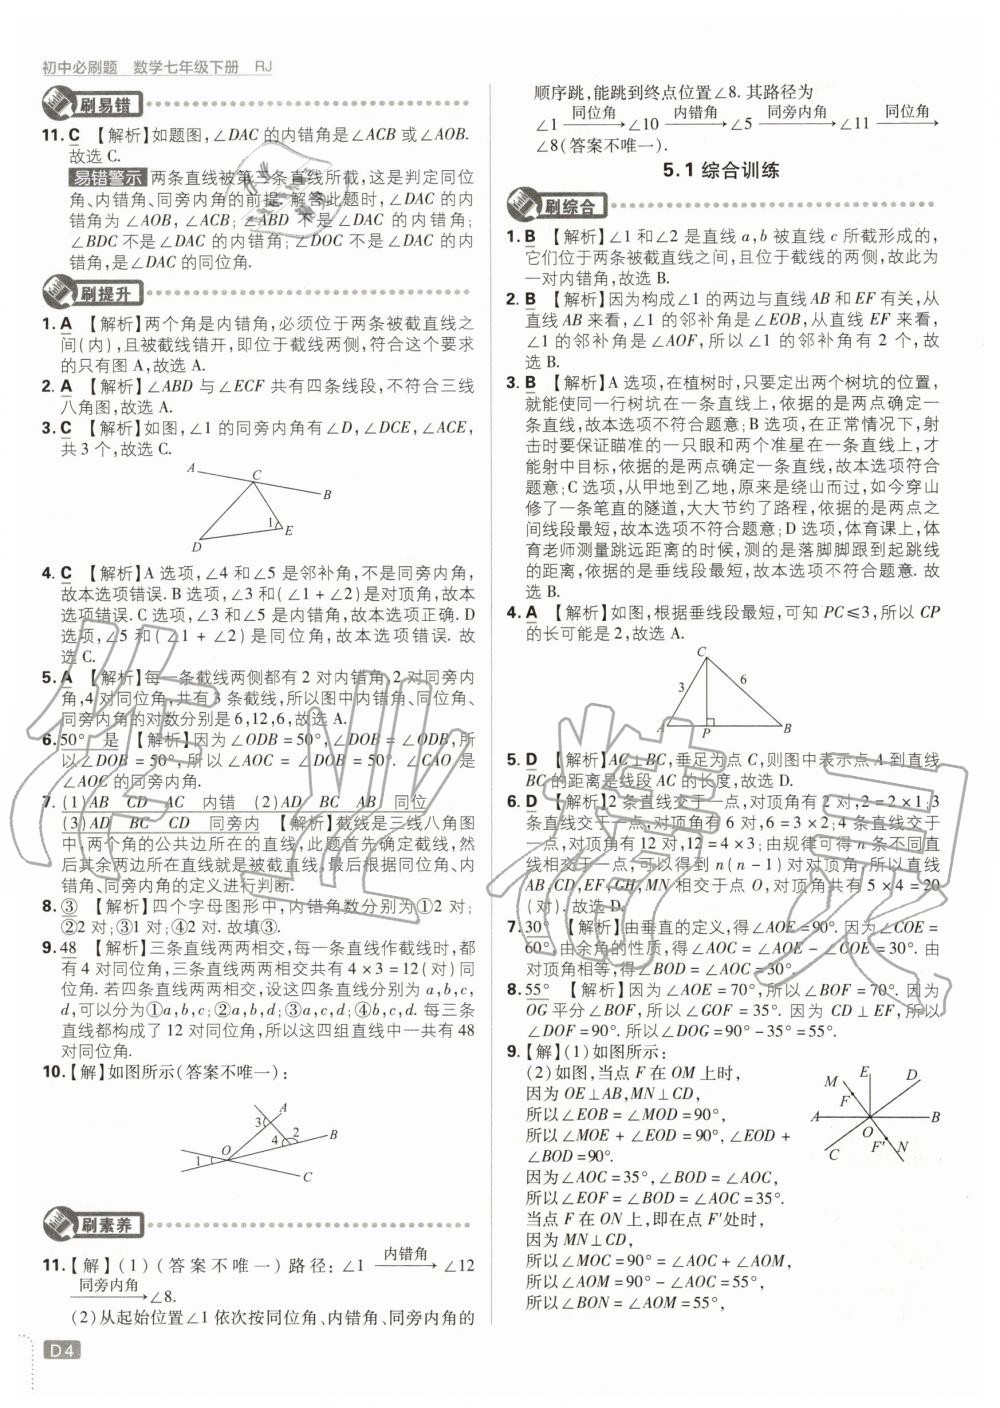 初中必刷题　数学七年级下册　RJ
刷易错
11. C 【解析】如题图,∠DAC 的内错角是∠ACB 或∠AOB.
故选 C.
易错警示 两条直线被第三条直线所截,这是判定同位
角、内错角、同旁内角的前提.解答此题时,∠DAC 的内
错角为∠AOB,∠ACB;∠ABD 不是∠DAC 的内错角;
∠BDC 不是∠DAC 的内错角;∠DOC 不是∠DAC 的内
错角,是∠DAC 的同位角.
刷提升
1. A 【解析】两个角是内错角,必须位于两条被截直线之
间(内),且被截线错开,即位于截线两侧,符合这个要求
的只有图 A,故选 A.
2. A 【解析】∠ABD 与∠ECF 共有四条线段,不符合三线
八角图,故选 A.
3. C 【解析】如图,∠1 的同旁内角有∠D,∠DCE,∠ACE,
共 3 个,故选 C.
A
C
B
1
E
D
4. C 【解析】A 选项,∠4 和∠5 是邻补角,不是同旁内角,
故本选项错误. B 选项,∠3 和(∠1+∠2)是对顶角,故本
选项错误. C 选项,∠3 和∠5 是内错角,故本选项正确. D
选项,∠5 和(∠1+∠2)是同位角,故本选项错误. 故
选 C.
5. A 【解析】每一条截线两侧都有 2 对内错角,2 对同旁内
角,4 对同位角,共有 3 条截线,所以图中内错角、同位角、
同旁内角的对数分别是 6,12,6,故选 A.
6. 50° 是 【解析】因为∠ODB=50°,∠DOB=∠ODB,所
以∠DOB=50°,所以∠AOC=∠DOB=50°. ∠CAO 是
∠AOC 的同旁内角.
7. (1)AB CD AC 内错 (2)AD BC AB 同位
(3)AD BC CD 同旁内 【解析】截线是三线八角图
中,两个角的公共边所在的直线,此题首先确定截线,然
后其余两边所在直线就是被截直线,最后根据同位角、内
错角、同旁内角的定义进行判断.
8. ③ 【解析】四个字母图形中,内错角数分别为①2 对;
②2 对;③1 对;④2 对.故填③.
9. 48 【解析】三条直线两两相交,每一条直线作截线时,都
有 4 对同位角,三条直线两两相交共有 4×3=12(对)同
位角.若四条直线两两相交,设这四条直线分别为 a,b,c,
d,可以分为①a,b,c;②a,b,d;③a,c,d;④b,c,d.每三条
直线都构成了 12 对同位角,所以这四组直线中一共有 48
对同位角.
10. 【解】如图所示(答案不唯一):
A
3
2
4
B
O
1
C
刷素养
11. 【解】(1)(答案不唯一)路径:∠1 内错角 ∠12
同旁内角 ∠8.
(2)从起始位置∠1 依次按同位角、内错角、同旁内角的
D4
顺序跳,能跳到终点位置∠8. 其路径为
∠1 同位角 ∠10 内错角 ∠5 同旁内角 ∠11 同位角
∠8(答案不唯一).
5.1 综合训练
刷综合
1. B 【解析】∠1 和∠2 是直线 a,b 被直线 c 所截形成的,
它们位于两条被截直线之间,且位于截线的两侧,故此为
一对内错角,故选 B.
2. B 【解析】因为构成∠1 的两边与直线 AB 和 EF 有关,从
直线 AB 来看,∠1 的邻补角是∠EOB,从直线 EF 来看,
∠1 的邻补角是∠AOF,所以∠1 的邻补角有 2 个,故
选 B.
3. B 【解析】A 选项,在植树时,只要定出两个树坑的位置,
就能使同一行树坑在一条直线上,依据的是两点确定一
条直线,故本选项不符合题意;B 选项,在正常情况下,射
击时要保证瞄准的一只眼和两个准星在一条直线上,才
能射中目标,依据的是两点确定一条直线,故本选项符合
题意;C 选项,从甲地到乙地,原来是绕山而过,如今穿山
修了一条笔直的隧道,大大节约了路程,依据的是两点之
间线段最短,故本选项不符合题意;D 选项,体育课上,体
育老师测量跳远距离的时候,测的是落脚脚跟到起跳线
的距离,依据的是垂线段最短,故本选项不符合题意. 故
选 B.
4. A 【解析】如图,根据垂线段最短,可知 PC≤3,所以 CP
的长可能是 2,故选 A.
C
3
6
A
P
B
5. D 【解析】AC⊥BC,垂足为点 C,则图中表示点 A 到直线
BC 的距离是线段 AC 的长度,故选 D.
6. D 【解析】2 条直线交于一点,对顶角有 2 对,2=2×1;3
条直线交于一点,对顶角有 6 对,6=3×2;4 条直线交于
一点,对顶角有 12 对,12=4×3;由规律可得 n 条不同直
线相交于一点,可以得到 n(n-1)对对顶角,所以直线
AB,CD,EF,GH,MN 相交于点 O,对顶角共有 5×4=20
(对).故选 D.
7. 30° 【解析】由垂直的定义,得∠AOE=90°. 因为∠COE=
60°,由余角的性质,得∠AOC=∠AOE-∠COE=30°. 由
对顶角相等,得∠BOD=∠AOC=30°.
8. 55° 【解析】因为∠AOE=70°,所以∠BOF=70°. 因为
OG 平分∠BOF,所以∠GOF=35°. 因为 CD⊥EF,所以
∠DOF=90°. 所以∠DOG=90°-35°=55°.
9. 【解】(1)如图所示:
(2)如图,当点 F 在 OM 上时,
因为 OE⊥AB,MN⊥CD,
所以∠EOB=∠MOD=90°,
所以∠MOE+∠EOD=90°,∠EOD+
∠BOD=90°.
因为∠AOC=35°,∠BOD=∠AOC,
所以∠EOF=∠BOD=∠AOC=35°.
当点 F 在 ON 上,即在点 F′处时,
因为 MN⊥CD,
所以∠MOC=90°=∠AOC+∠AOM,
所以∠AOM=90°-∠AOC=55°,
所以∠BON=∠AOM=55°,
M
E
D
F
A
B
O
C
F′
N
作业精灵